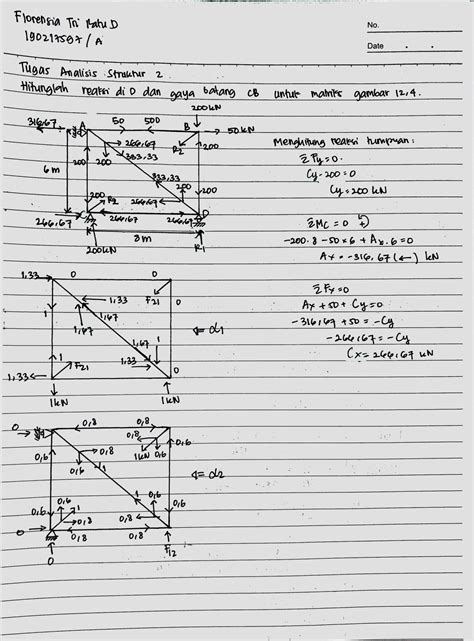 Florensia Tri Ratu D
190217587 / A
No.
Date
Tugas Analisis Struktur 2
Hitunglah reaksi di D dan gaya batang CB untuk matriks gambar 12,4.
200 kN
316,67
A
50
500
B
50 kN
200
266,67
333,33
R2
200
6 m
333,33
200
200
R2
266,67
200
200
266,67
266,67
266,67
D
8 m
200kN
R1
Menghitung reaksi tumpuan:
ΣFy = 0
Cy - 200 = 0
Cy = 200 kN
ΣMC = 0
-200 . 8 - 50 x 6 + Ax . 6 = 0
Ax = -316,67 (←) kN
ΣFx = 0
Ax + 50 + Cy = 0
-316,67 + 50 = -Cy
-266,67 = -Cy
Cx = 266,67 kN
1,33
0
0
1
1,33
F21
0
1,67
1,67
1
1,33
1
F21
0
1,33
1kN
1kN
⇐ α1
0
0,8
0,8
0,6
0,8
0,6
1
1kN
0,6
0,6
0,6
0,6
1
0,8
1
0,6
0,8
0,6
0
0,8
0,8
0
F12
⇐ α2